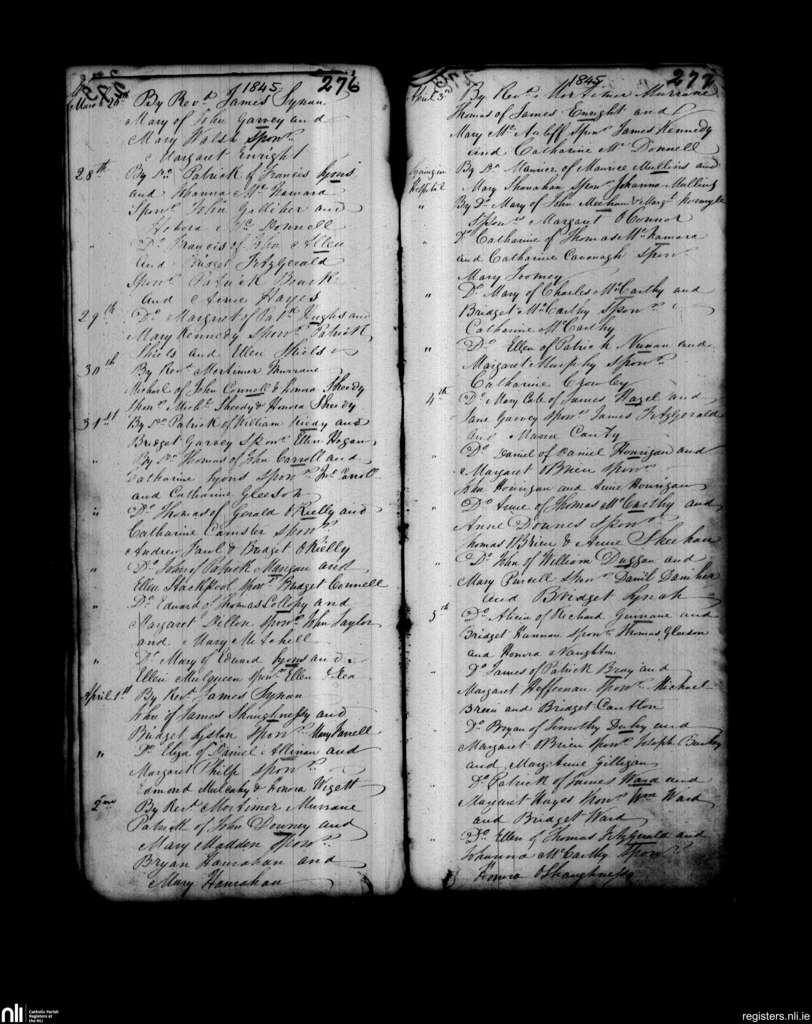 1845 276
March 26th By Revd. James Synan
Mary of John Garvey and
Mary Walsh Sponrs.
Margaret Enright
28th By Do. Patrick of Francis Lyons
and Hanna
Sponrs. John Galliher and
Honora Mc. Donnell
" Do. Francis of John Allen
and Bridget FitzGerald
Sponrs. Patrick
and Anne Hayes
29th Do. Margret of Patk. Hughs and
Mary Kennedy Sponrs. Patrick
Shiels and Ellen Shields
30th By Revd. Mortimer Murrane
Michael of John Connoll & Honora Sheedy
Sponrs. Michl. Sheedy & Honora Sheedy
31st By Do. Patrick of William and
Bridget Garvey Sponr. Ellen Hogan
" By Do. Thomas of John Carroll and
Catharine Lyons Sponrs. Jno. Carroll
and Catharine Gleeson
" Do. Thomas of Gerald OKielly and
Catharine Sponrs.
Andrew Paul & Bridget OKielly
" Do. John of Patrick Mangan and
Ellen Stackpool Sponr. Bridget Connell
" Do. Edward of Thomas Collopy and
Margaret Dillon Sponrs. John Taylor
and Mary Mitchell
" Do. Mary of Edward Lyons and
Ellen Mulqueen Sponr. Ellen Rea
April 1st By Revd. James Synan
John of James Shaughnessy and
Bridget Lyston Sponr. Mary Farrell
" Do. Eliza of Daniel Allinan and
Margaret Philp Sponrs.
Edmond Mulcahy & Honora Wigett
2nd By Revd. Mortimer Murrane
Patrick of John Downey and
Mary Madden Sponrs.
Bryan Hanrahan and
Mary Hanrahan
1845 277
April 3d By Revd. Mortimer Murrane
Thomas of James Enright and
Mary Mc. Auliff Sponrs. James Kennedy
and Catharine Mc. Donnell
Lying in By Do. of Maurice Mullins and
Hospital Mary Shanahan Sponr. Johanna Mullins
" By Do. Mary of John Meehan & Margt.
Sponr. Margaret OConnor
" Do. Catharine of Thomas McNamara
and Catharine Cavanagh Sponr.
Mary Toomey
" Do. Mary of Charles McCarthy and
Bridget McCarthy Sponr.
Catharine McCarthy
" Do. Ellen of Patrick Nunan and
Margaret Murphy Sponr.
Catharine Crowley
4th Do. Mary Cate of James Nagel and
Jane Garvey Sponrs. James FitzGerald
and Maria Canty
" Do. Daniel of Daniel Hourigan and
Margaret OBrien Sponrs.
John Hourigan and Anne Hourigan
" Do. Anne of Thomas McCarthy and
Anne Downes Sponrs.
Thomas OBrien & Anne Sheehan
" Do. John of William Duggan and
Mary Purcell Sponrs. Daniel
and Bridget Lynch
5th Do. Alicia of Richard Guinane and
Bridget Hannan Sponrs. Thomas Gleeson
and Honora Naughton
" Do. James of Patrick Bray and
Margaret Heffernan Sponrs. Michael
Breen and Bridget Cantlon
Do. Bryan of Timothy Darby and
Margaret OBrien Sponrs. Joseph
and Mary Anne Gilligan
" Do. Patrick of James Ward and
Margaret Hayes Sponrs. Wm. Ward
and Bridget Ward
" Do. Ellen of Thomas FitzGerald and
Johanna McCarthy Sponr.
Honora OShaughnessy
nli Catholic Parish
Registers at
the NLI
registers.nli.ie